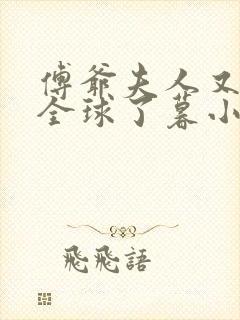 傅爺夫人又
全球了暮小
飛飛語